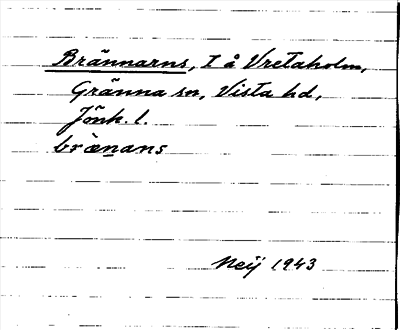 Brännarns, I å Vretaholm,
Gränna sn, Vista hd,
Jönk. l.
brænans
Neij 1943